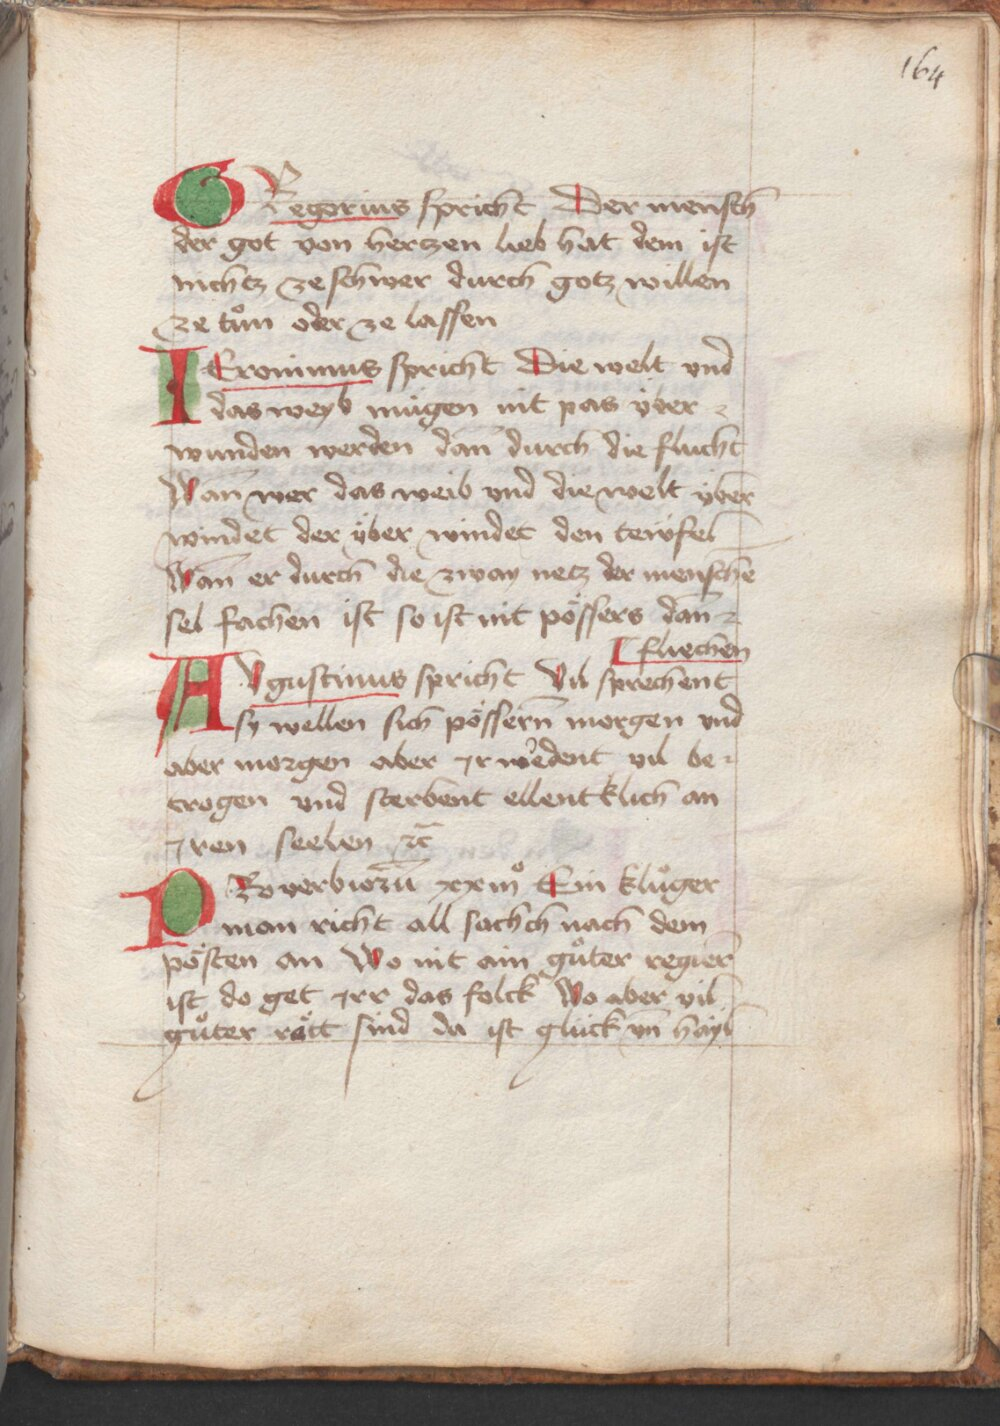 164
GRegorius spricht Der mensch
der got von hertzen lieb hat dem ist
nichtz ze schwer durch gotz willen
ze tůn oder ze lassen
IEronimus spricht Die welt vnd
das weyb mügen nit pas v̈ber⸗
wunden werden dañ durch die flucht
Wañ wer das weib vnd die welt v̈ber
windet der v̈ber windet den tewfel
Wañ er durch die zway netz der mensche
sel fachen ist so ist nit pössers dañ⸗
[fliechen
AVgustinus spricht Vil sprechent
sy wellen sich pössern̄ morgen vnd
aber morgen aber ir werdent vil be⸗
trogen vnd sterbent ellentklich an
iren seelen ꝛc̄
PRoverbiorū xxiijº Ein klůger
man richt all sachch nach dem
pösten an Wo nit ain gůter regierer
ist do get irr das folck Wo aber vil
gůter rätt sind da ist glück vn̄ hayl